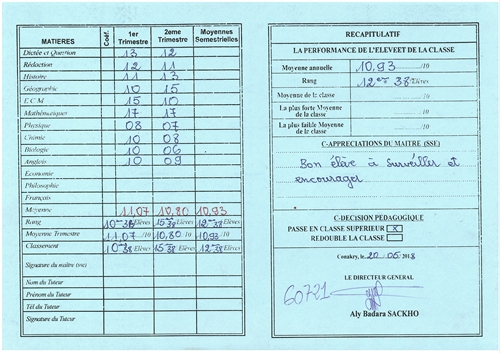 MATIERES Coéf. 1er Trimestre 2eme Trimestre Moyennes Semestrielles
Dictée et Question 13 12
Rédaction 12 11
Histoire 11 13
Géographie 10 15
E.C.M 15 10
Mathématiques 17 17
Physique 08 07
Chimie 10 08
Biologie 10 06
Anglais 10 09
Economie
Philosophie
Français
Moyenne 11,07 10,80 10,93
Rang Elèves Elèves Elèves
Moyenne Trimestre 11,07/10 10,80/10 10,93/10
Classement
Signature du maître (sse)
Nom du Tuteur
Prénom du Tuteur
Tél du Tuteur
Signature du Tuteur
RECAPITULATIF
LA PERFORMANCE DE L'ELEVEET DE LA CLASSE
Moyenne annuelle 10,93 /10
Rang 12 38/Elèves
Moyenne de la classe /10
La plus forte Moyenne de la classe /10
La plus faible Moyenne de la classe /10
C-APPRECIATIONS DU MAITRE (SSE)
Bon élève à surveiller et
encourager
C-DECISION PEDAGOGIQUE
PASSE EN CLASSE SUPERIEUR X
REDOUBLE LA CLASSE
Conakry, le 20/06/2018
LE DIRECTEUR GENERAL
60721
Aly Badara SACKHO